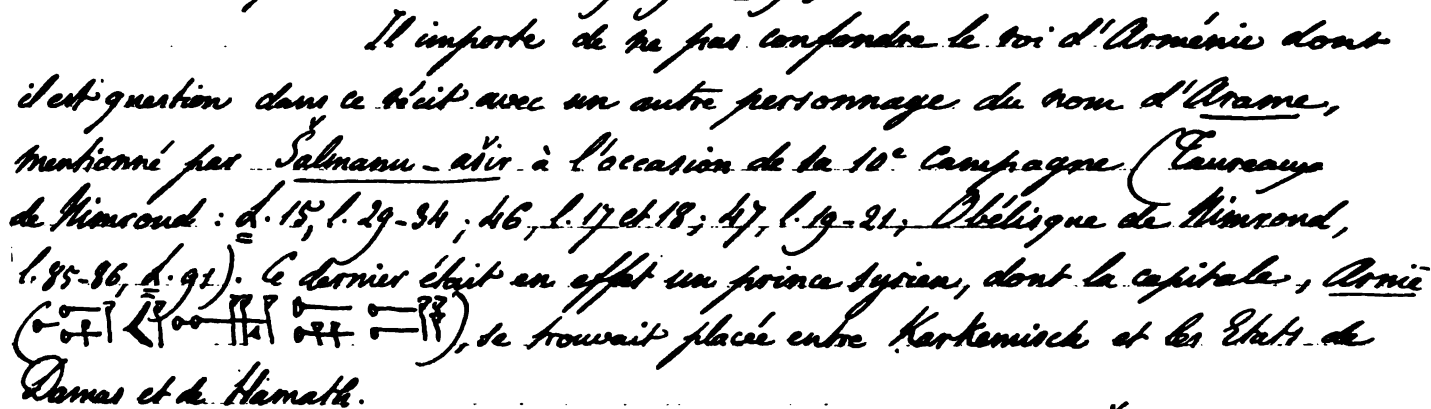 Il importe de ne pas confondre le roi d'Arménie dont
il est question dans ce récit avec un autre personnage du nom d'Arame,
mentionné par Šalmanu-ašir à l'occasion de sa 10e campagne (Taureaux
de Nimroud : L. 15, l. 29-34 ; 46, l. 17 et 18 ; 47, l. 19-21 ; Obélisque de Nimroud,
l. 85-86, L. 91). Ce dernier était en effet un prince syrien, dont la capitale, Arnië
( ), se trouvait placée entre Karkemisch et les Etats de
Damas et de Hamath.